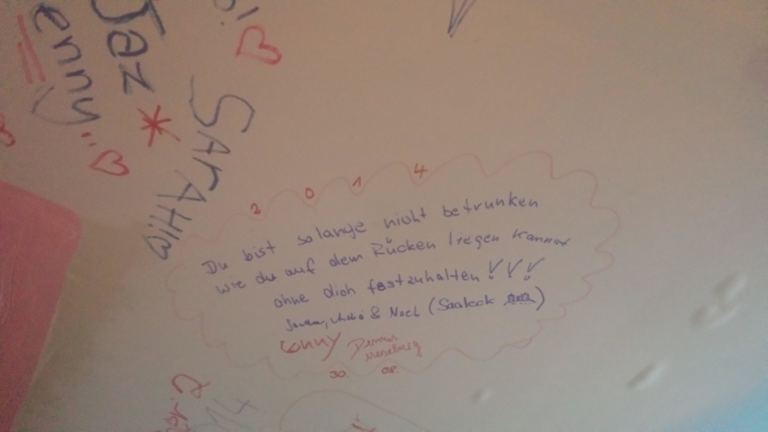 Jaz
enny
SARAH
2 0 1 4
Du bist solange nicht betrunken
wie du auf dem Rücken liegen kannst
ohne dich festzuhalten !!!
& Noel (Saaleck
Conny
30. 08.